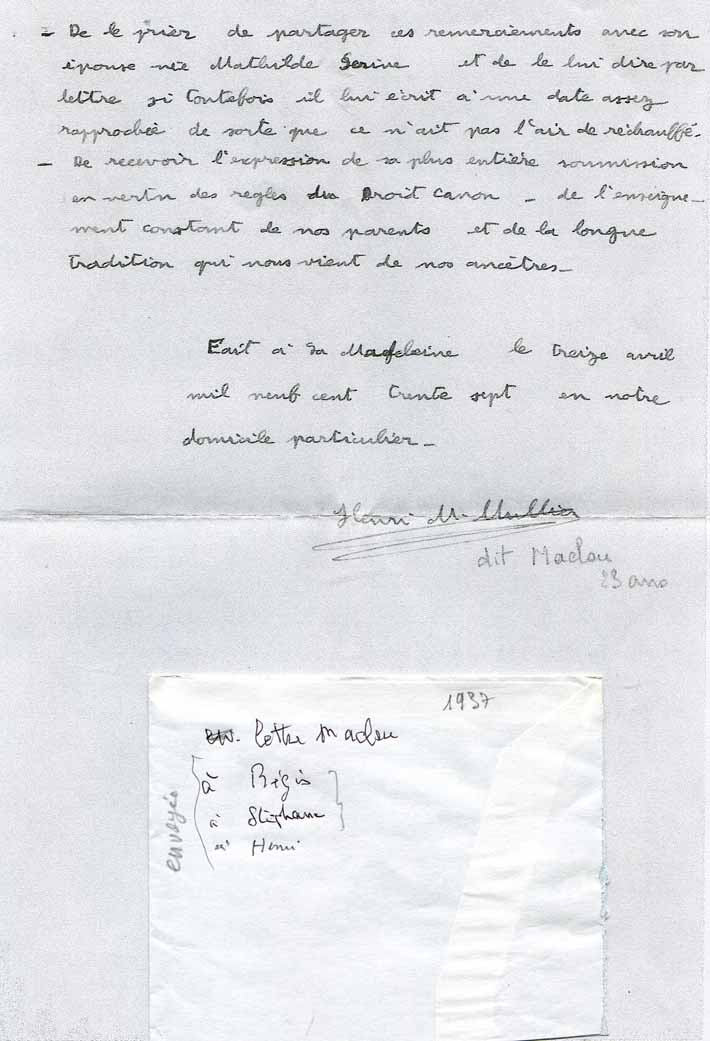 - De le prier de partager ces remerciements avec son
épouse née Mathilde Serine et de le lui dire par
lettre si toutefois il lui écrit à une date assez
rapprochée de sorte que ce n'ait pas l'air de réchauffé.
- De recevoir l'expression de sa plus entière soumission
en vertu des règles du Droit Canon - de l'enseigne-
ment constant de nos parents et de la longue
tradition qui nous vient de nos ancêtres -
Fait à La Madeleine le treize avril
mil neuf cent trente sept en notre
domicile particulier -
Henri M. Mullier
dit Maclou
23 ans
1937
lettre Maclou
envoyée
à Régis
à Stéphane
à Henri